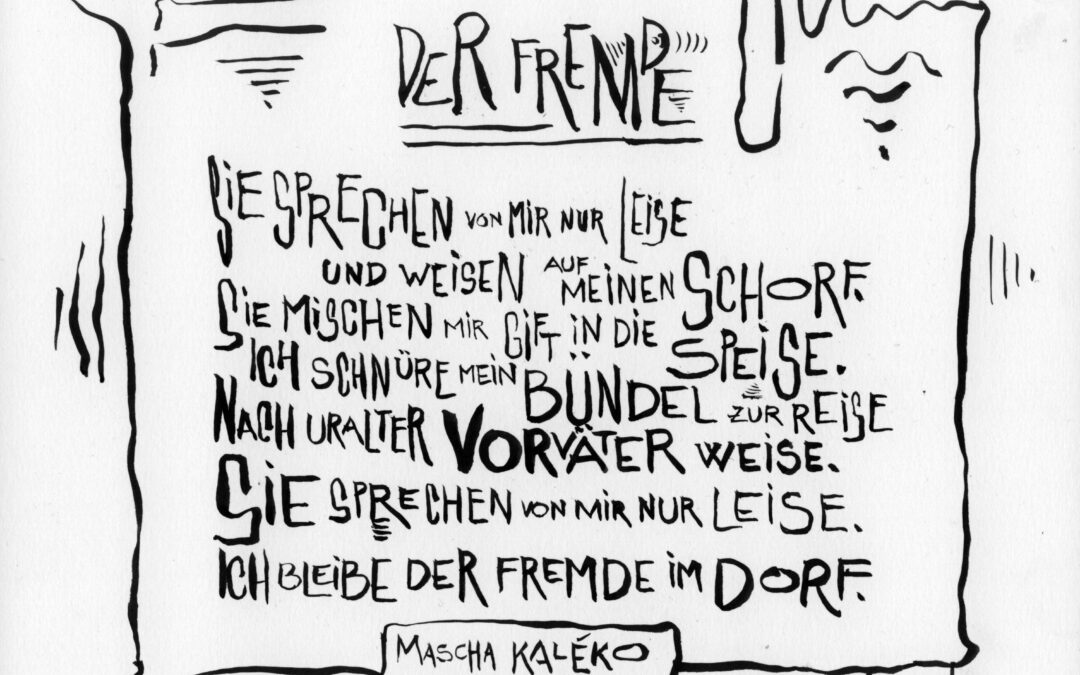 DER FREMDE
SIE SPRECHEN VON MIR NUR LEISE
UND WEISEN AUF MEINEN SCHORF.
SIE MISCHEN MIR GIFT IN DIE SPEISE.
ICH SCHNÜRE MEIN BÜNDEL ZUR REISE
NACH URALTER VORVÄTER WEISE.
SIE SPRECHEN VON MIR NUR LEISE.
ICH BLEIBE DER FREMDE IM DORF.
MASCHA KALÉKO